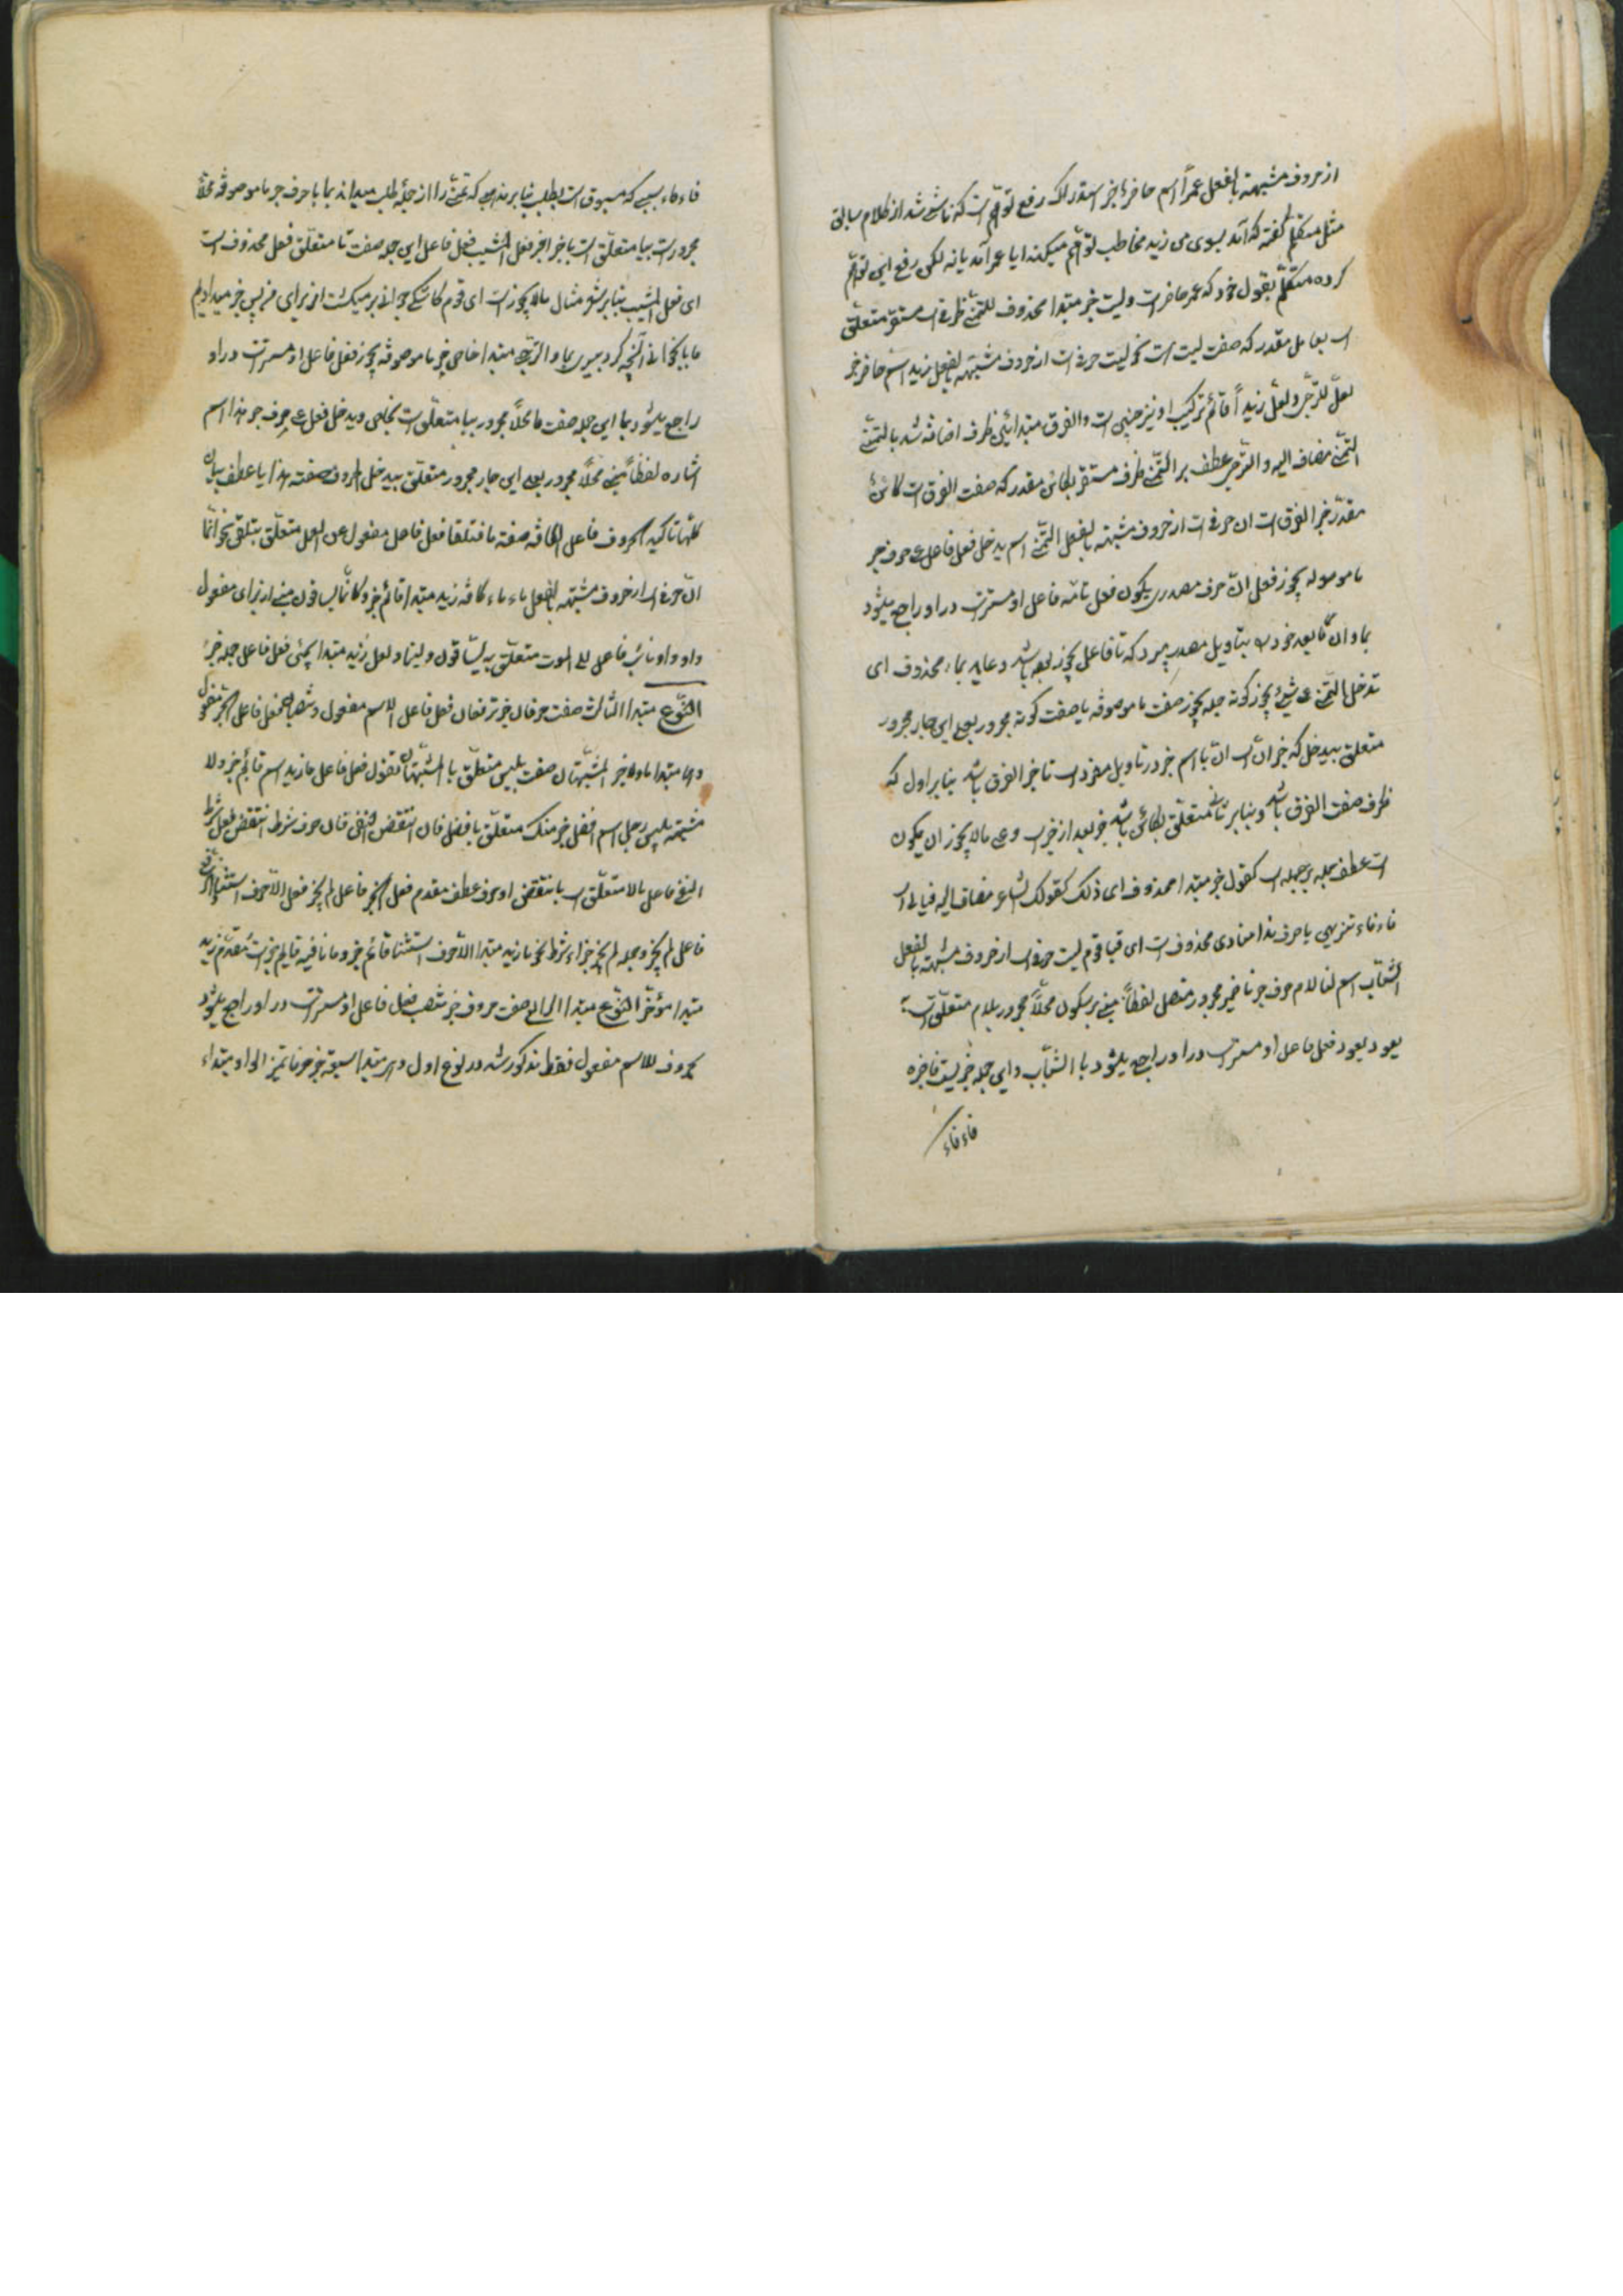 از حروف مشبهة بالفعل عمراً اسم حاضرٌ خبر استدراک رفع توهّم است که ناشی شد از کلام سابق
مثل متکلم گفته که آمد بسوی من زید مخاطب توهّم میکند ایا عمر آمد یا نه لکن رفع این توهّم
کرده متکلّم بقول خود که عمر حاضر است ولیت خبر مبتدا محذوف للتمنّی ظرف است مستقر متعلّق
است بعامل مقدر که صفت لیت است نحو لیت حرف است از حروف مشبّهه بالفعل زید اسم حاضر خبر
لعلّ للترجّی ولعلّ زیداً قائم ترکیب او نیز چنین است والفرق مبتدا بین ظرف اضافه شد بالتمنّی
التمنّی مضاف الیه والترجّی عطف بر التمنّی ظرف مستقر بکائن مقدر که صفت الفرق است کائن
مقدّر خبر الفرق است ان حرف است از حروف مشبّهه بالفعل التمنّی اسم یدخل فعل فاعل علی حرف جر
ما موصوله یجوز فعل انّ حرف مصدری یکون فعل تامّه فاعل او مستتر است در او راجع میشود
بما و ان ما بعد خود است بتاویل مصدر میبرد که تا فاعل یجوز بوده باشد و عاید بما محذوف ای
تدخل التمنّی علی شیئٍ یجوز کونه جمله یجوز صفت ما موصوفه یا صفت کونه مجرور بعلی این جار مجرور
متعلق بیدخل که خبر انّ است انّ با اسم خبر در تاویل مفرد است تا خبر الفرق باشد بنابر اول که
ظرف صفت الفرق باشد و بنابر ثانی متعلّق بکائن باشد خبر بعد از خبر است وعلی مالا یجوز ان یکون
است عطف جمله بر جمله است کقول خبر مبتدا محذوف ای ذلک کقولک الشاعر مضاف الیه فیالی است
فاء فاء تنزیهی یا حرف ندا منادی محذوف است ای فیا قوم لیت حرف است از حروف مشبّهة بالفعل
الشباب اسم لنا لام حرف جر نا ضمیر مجرور متصل لفظاً مبنی بر سکون محلّاً مجرور بلام متعلّق است به
یعود یعود فعل فاعل او مستتر است در او راجع میشود با الشباب و این جمله خبر لیت فاخبره
فاء فاء
فاء فاء سببی که مسبوق است بطلب بنابر مذهبی که تمنّی را از جمله طلب میداند بما با حرف جر ما موصوفه محلّاً
مجرور است ببا متعلّق است با خبر اخبر فعل المشیب فعل فاعل این جمله صفت ما متعلّق فعل محذوف است
ای فعل المشیب بنابر شعر مثال مالا یجوز است ای قوم کاشکی جوانی بر میگشت از برای من پس خبر میدادیم
ما با جوانی آنچه کرد پیری بما والترجّی مبتدا خاص خبر ما موصوفه یجوز فعل فاعل او مستتر است در او
راجع میشود بما این جمله صفت ما محلّاً مجرور ببا متعلّق است بخاص ویدخل فعل علی حرف جر هذا اسم
اشاره لفظاً مبنی محلّاً مجرور بعلی این جار مجرور متعلّق بیدخل الحروف صفت هذا یا عطف بیان
کلّها تاکید الحروف فاعل الکافه صفة ما فتلغا فعل فاعل مفعول عن العمل متعلّق بتلغی نحو انّما
انّ حرف است از حروف مشبّهه بالفعل ماء ماء کافّه زید مبتدا قائم خبر وکانّما یساقون مبنی از برای مفعول
واو واو نائب فاعل الی الموت متعلّق به یساقون ولیتما ولعلّ زید مبتدا یجیئ فعل فاعل جمله خبر
النّوع مبتدا الثالث صفت حرفان خبر ترفعان فعل فاعل الاسم مفعول وتنصبان فعل فاعل الخبر مفعول
وهما مبتدا ما ولا خبر المشبّهتان صفت بلیس متعلّق با المشبّهتان تقول فعل فاعل ما زید اسم قائم خبر ولا
مشبّهه بلیس رجل اسم افضل خبر منک متعلّق بافضل فان انتقض النّفی فان حرف شرط انتقض فعل شرط
النفی فاعل بالّا متعلّق است بانتقض او حرف عطف مقدم فعل الخبر فاعل لم یجز فعل الّا حرف استثنا
فاعل لم یجز وجمله لم یجز جزاء شرط نحو ما زید مبتدا الّا حرف استثنا قائم خبر وما نافیه قایم خبر است مقدّم زید
مبتدا مؤخّر النّوع مبتدا الرابع صفت حروف خبر تنصب فعل فاعل او مستتر است در او راجع میشود
بحروف للاسم مفعول فقط مذکور شد در نوع اول وهی مبتدا سبعة خبر حرفا تمیز الواو مبتداء